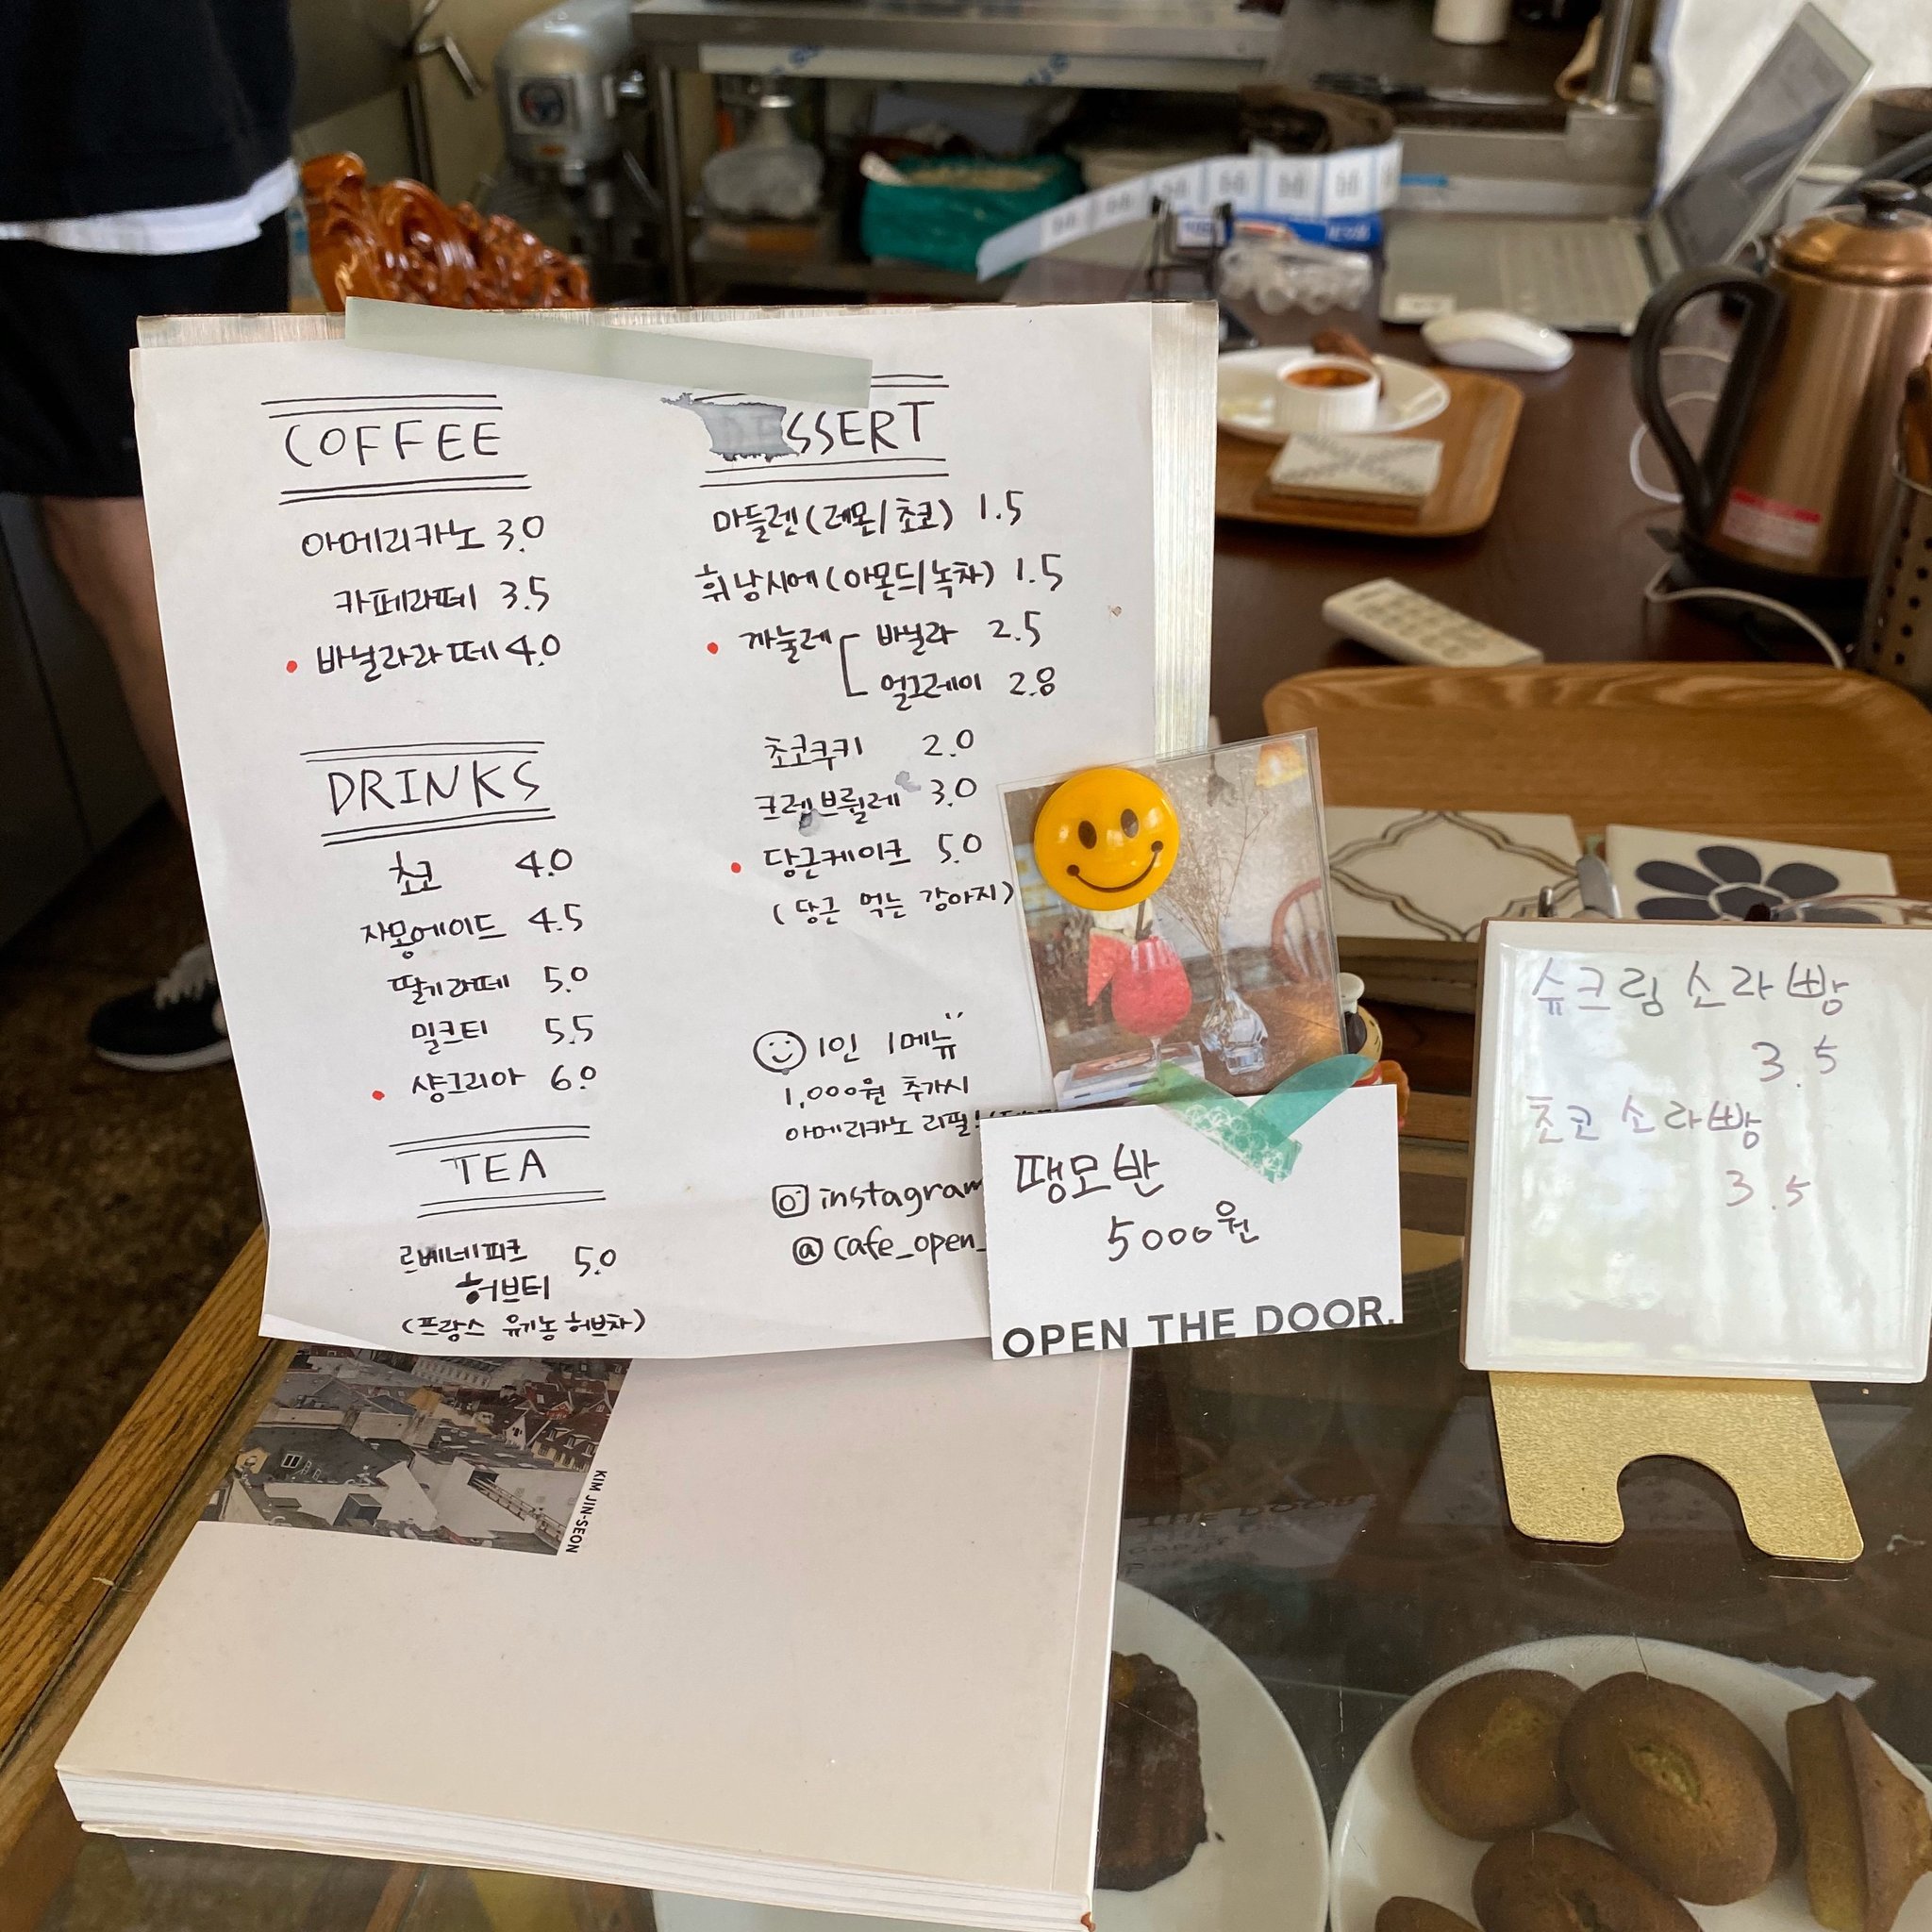 COFFEE
아메리카노 3.0
카페라떼 3.5
바닐라라떼 4.0
DRINKS
쵸코 4.0
자몽에이드 4.5
딸기라떼 5.0
밀크티 5.5
샹그리아 6.0
TEA
르베네피크 5.0
허브티
(프랑스 유기농 허브차)
DESSERT
마들렌(레몬/쵸코) 1.5
휘낭시에(아몬드/녹차) 1.5
까눌레 바닐라 2.5
얼그레이 2.8
초코쿠키 2.0
크렘브륄레 3.0
당근케이크 5.0
(당근 먹는 강아지)
1인 1메뉴
1,000원 추가시
아메리카노 리필!
instagram
@cafe_open_
땡모반
5000원
OPEN THE DOOR.
슈크림 소라빵
3.5
초코 소라빵
3.5
KIM JIN-SEON